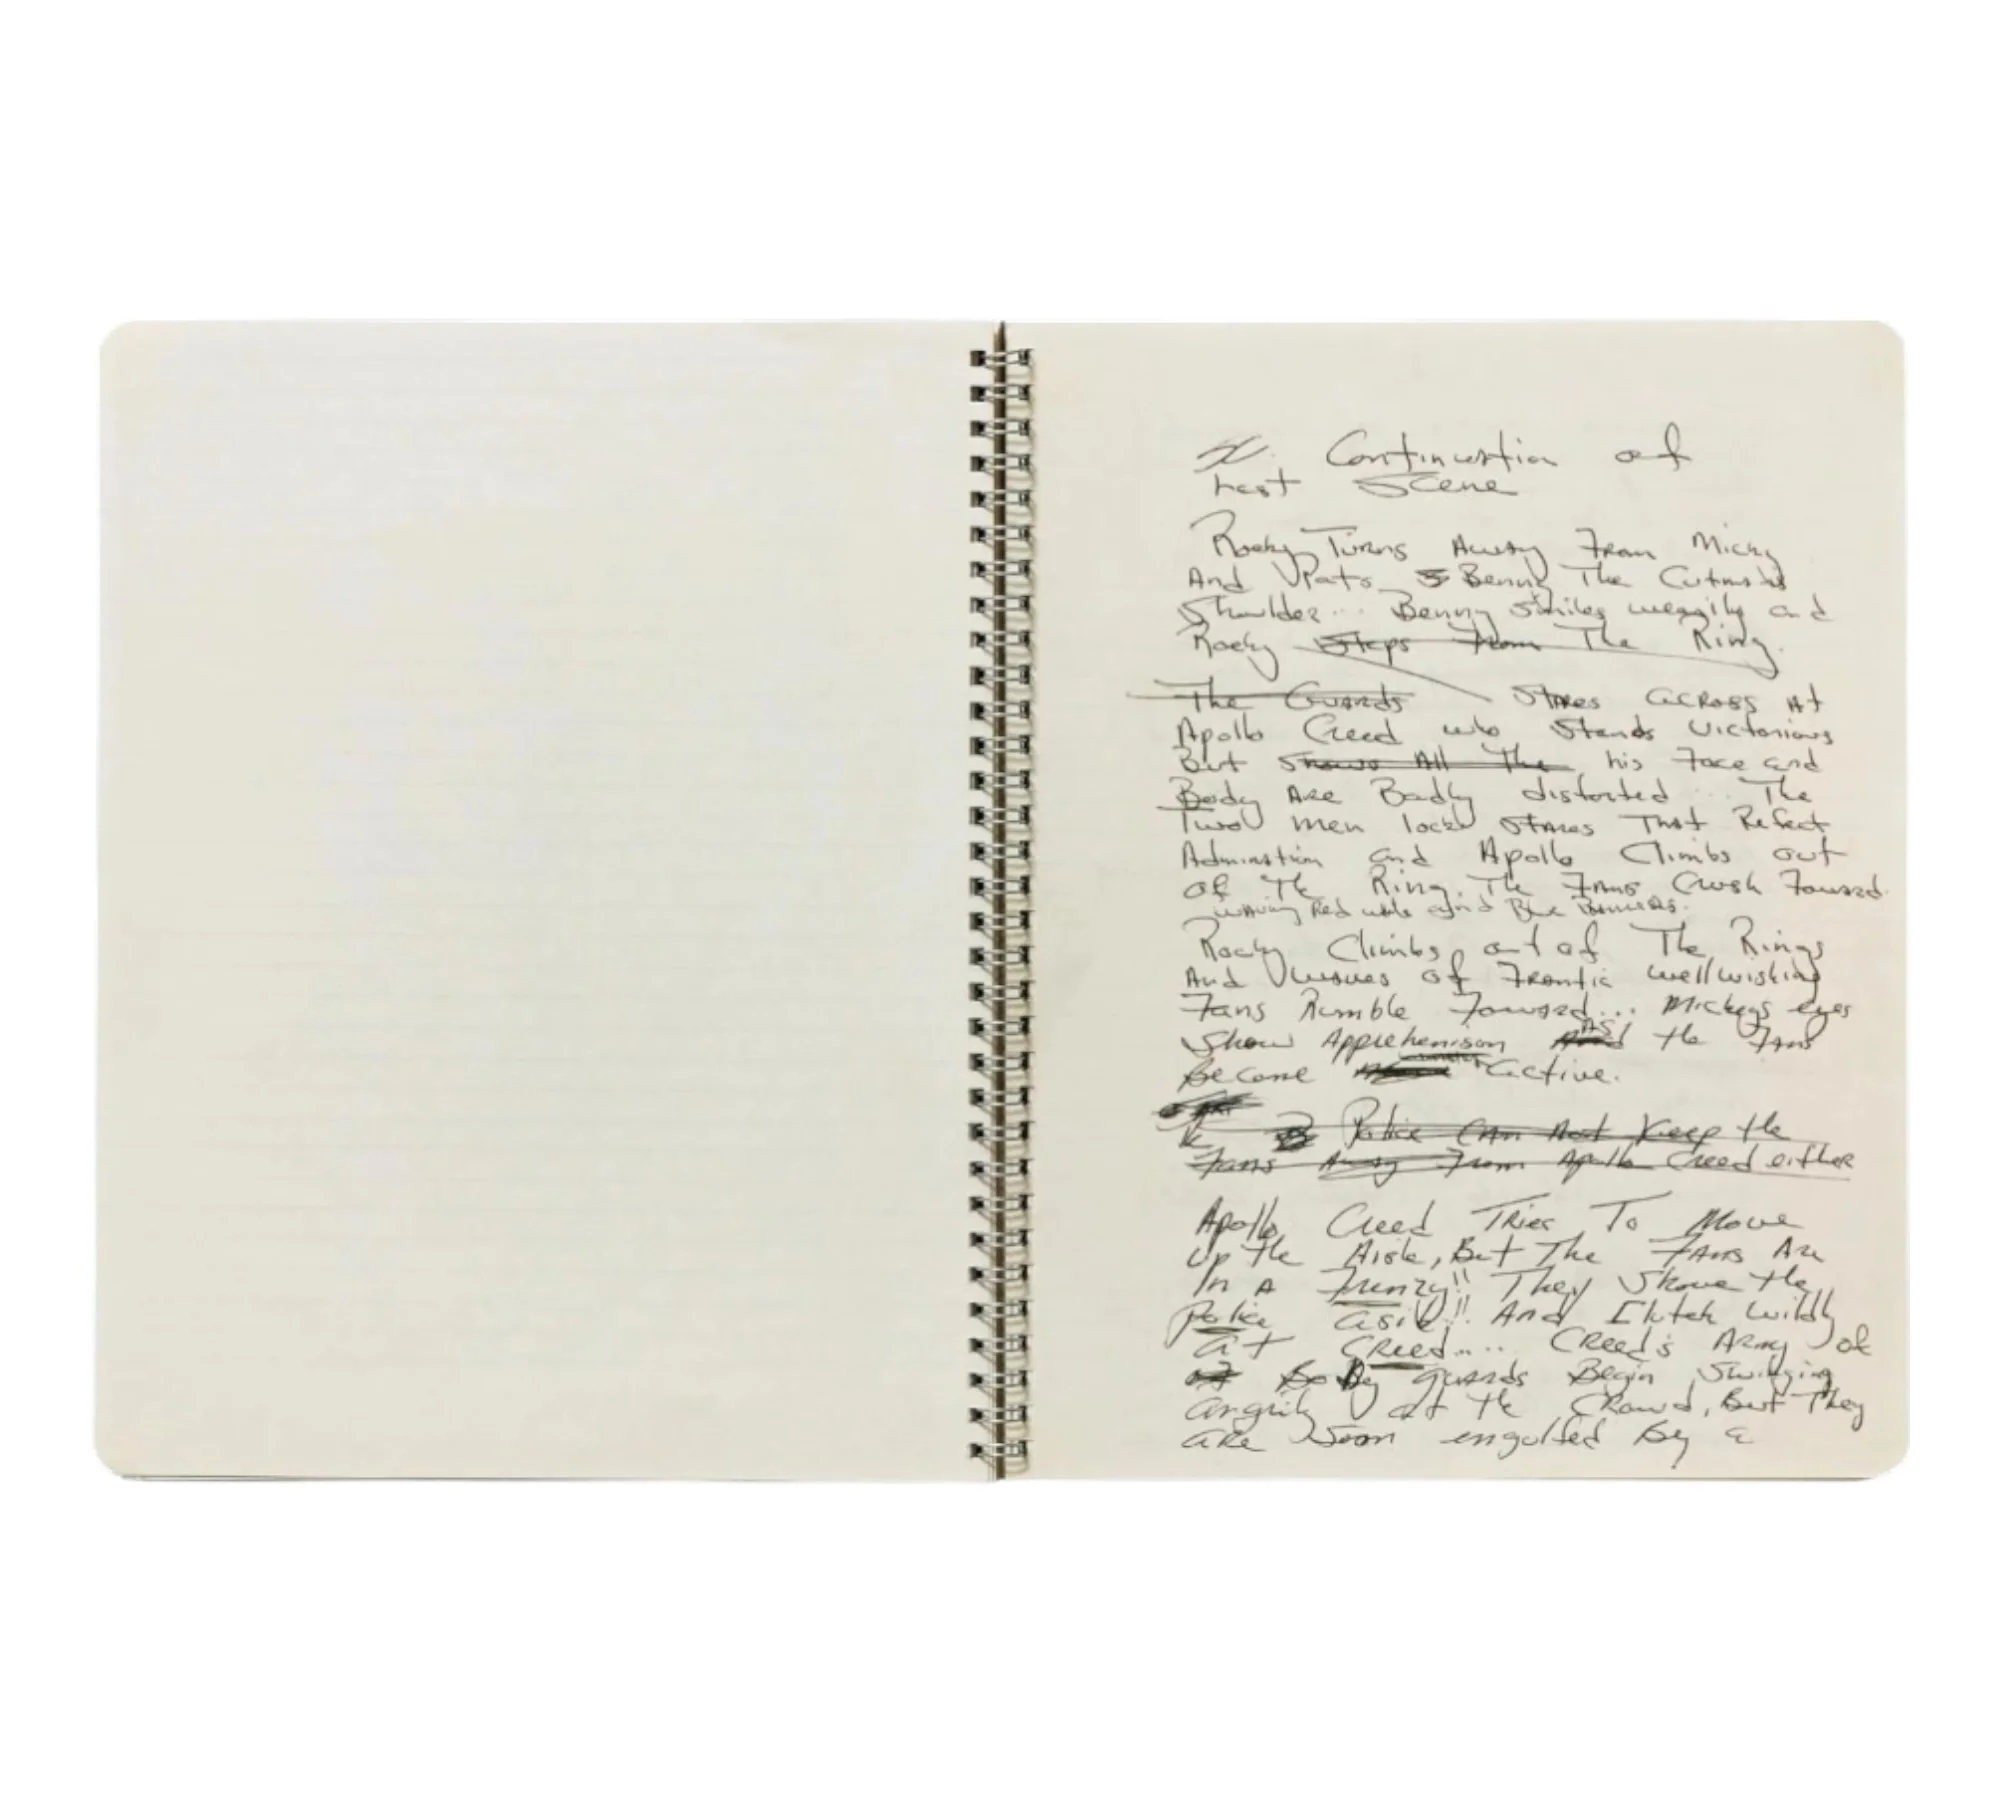 Continuation of
Last Scene
Rocky Turns Away From Micky
And Pats Benny The Cutman's
Shoulder... Benny Smiles wearily and
Rocky Steps From The Ring.
The Guards Stares across At
Apollo Creed who Stands Victorious
But Shows All The his Face and
Body Are Badly distorted ... The
Two men lock Stares That Reflect
Admiration and Apollo Climbs out
of The Ring. The Fans Crush Foward
waving Red white and Blue Banners.
Rocky Climbs out of The Rings
And waves of Frantic wellwishing
Fans Rumble Foward... Mickeys eyes
Show Apprehenison As the Fans
Become active.
Police Can Not Keep the
Fans Away From Apollo Creed either
Apollo Creed Tries To Move
Up the Aisle, But The Fans Are
In A Frenzy!! They Shove the
Police aside!! And Clutch wildly
at Creed.... Creed's Army of
Body guards Begin Swinging
angrily at the Crowd, But They
are Soon engulfed By a